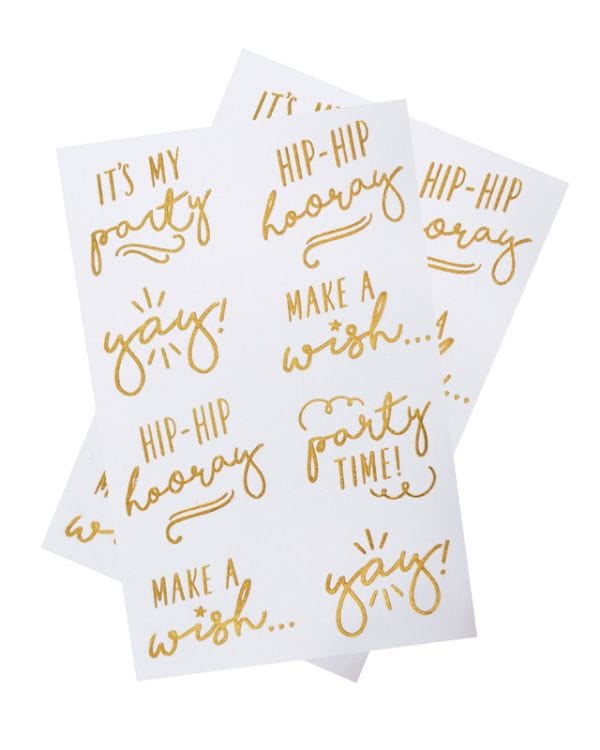 IT'S MY
party
HIP-HIP
hooray
yay!
MAKE A
wish...
HIP-HIP
hooray
party
TIME!
MAKE A
wish...
yay!
IT'S
HIP-HIP
ooray
w